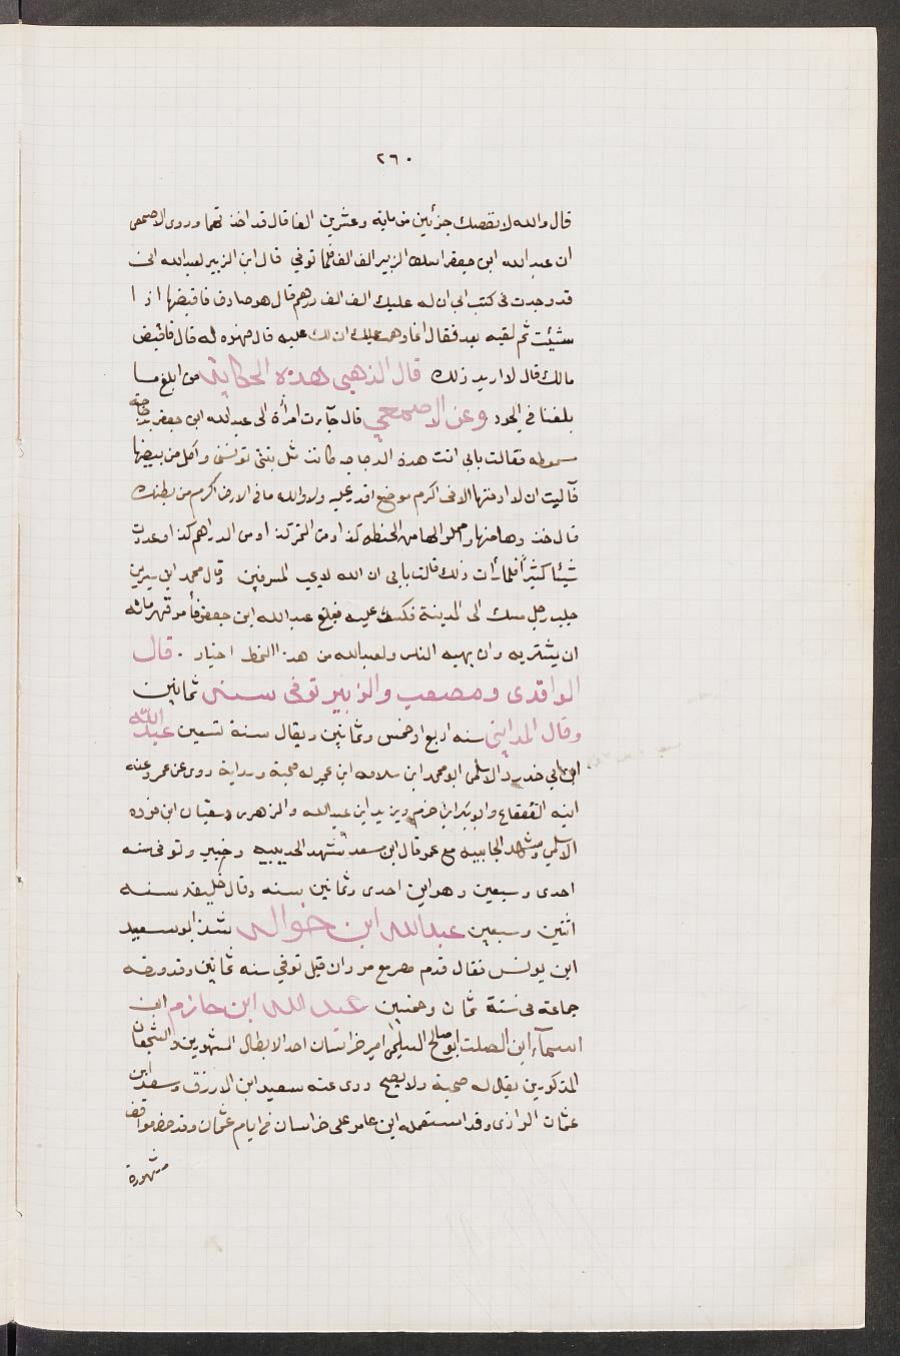 ٢٦٠
قال والله لانقصك جزئين من ماية وعشرين الفا قال قد اخذ تهما وروى الاصمعى
ان عبد الله ابن جعفر اسلف الزبير الف الف فلما توفي قال ابن الزبير لعبد الله انى
قد وجدت فى كتب ابى ان له عليك الف الف درهم قال هو صادق فاقبضها اذا
شئت ثم لقيه بعد فقال انما وهمت عليك ان لك عليه قال فهوه له قال فاقبض
مالك قال لا اريد ذلك قال الذهبي هذه الحكاية من ابلغ ما
بلغنا في الجود وعن الاصمعي قال جآءت امرأة الى عبد الله ابن جعفر بدجاجة
مسموطه فقالت بابي انت هذه الدجاجه كانت مثل بنتي تونسنى وآكل من بيضها
فآليت ان لا ادفنها الا فى اكرم موضع اقدر عليه ولا والله ما فى الارض اكرم من بطنك
قال خذوها منها واحملوا الها من الحنطه كذا ومن التمر كذا ومن الدراهم كذا وعددت
شيئا كثيرا فلما رأت ذلك قالت بابى ان الله لا يحب المسرفين وقال محمد ابن سيرين
جلب رجل سكر الى المدينة فكسد عليه فبلغ عبد الله ابن جعفر فأمر قهرمانه
ان يشتريه وان يهبه الناس ولعبد الله من هذا النمط اخبار . قال
الواقدى ومصعب والزبير توفى سنه ثمانين
وقال المداينى سنه اربع او خمس وثمانين ويقال سنة تسعين عبد الله
ابن ابي حدرد الاسلمى ابو محمد ابن سلامه ابن عمير له صحبة ورواية روى عن عمر وعنه
ابنه القعقاع وابو بكر ابن حزم ويزيد ابن عبد الله والزهرى وسفيان ابن فروه
الاسلمي وشهد الجابيه مع عمر قال ابن سعد شهد الحديبيه وخيبر وتوفى سنه
احدى وسبعين وهو ابن احدى وثمانين سنه وقال خليفه سنه
اثنتين وسبعين عبد الله ابن حواله شذ ابو سعيد
ابن يونس فقال قدم مصر مع مروان قيل توفي سنه ثمانين وقد ورخه
جماعه فى سنة ثمان وخمسين عبد الله ابن حازم ابن
اسمآء ابن الصلت ابو صالح السلمى امير خراسان احد الابطال المشهورين والشجعان
المذكورين يقال له صحبة ولا يصح روى عنه سعيد ابن الازرق وسعد ابن
عثمان الرازى وقد استعمله ابن عامر على خراسان فى ايام عثمان وقد حضر مواقف
مشهورة